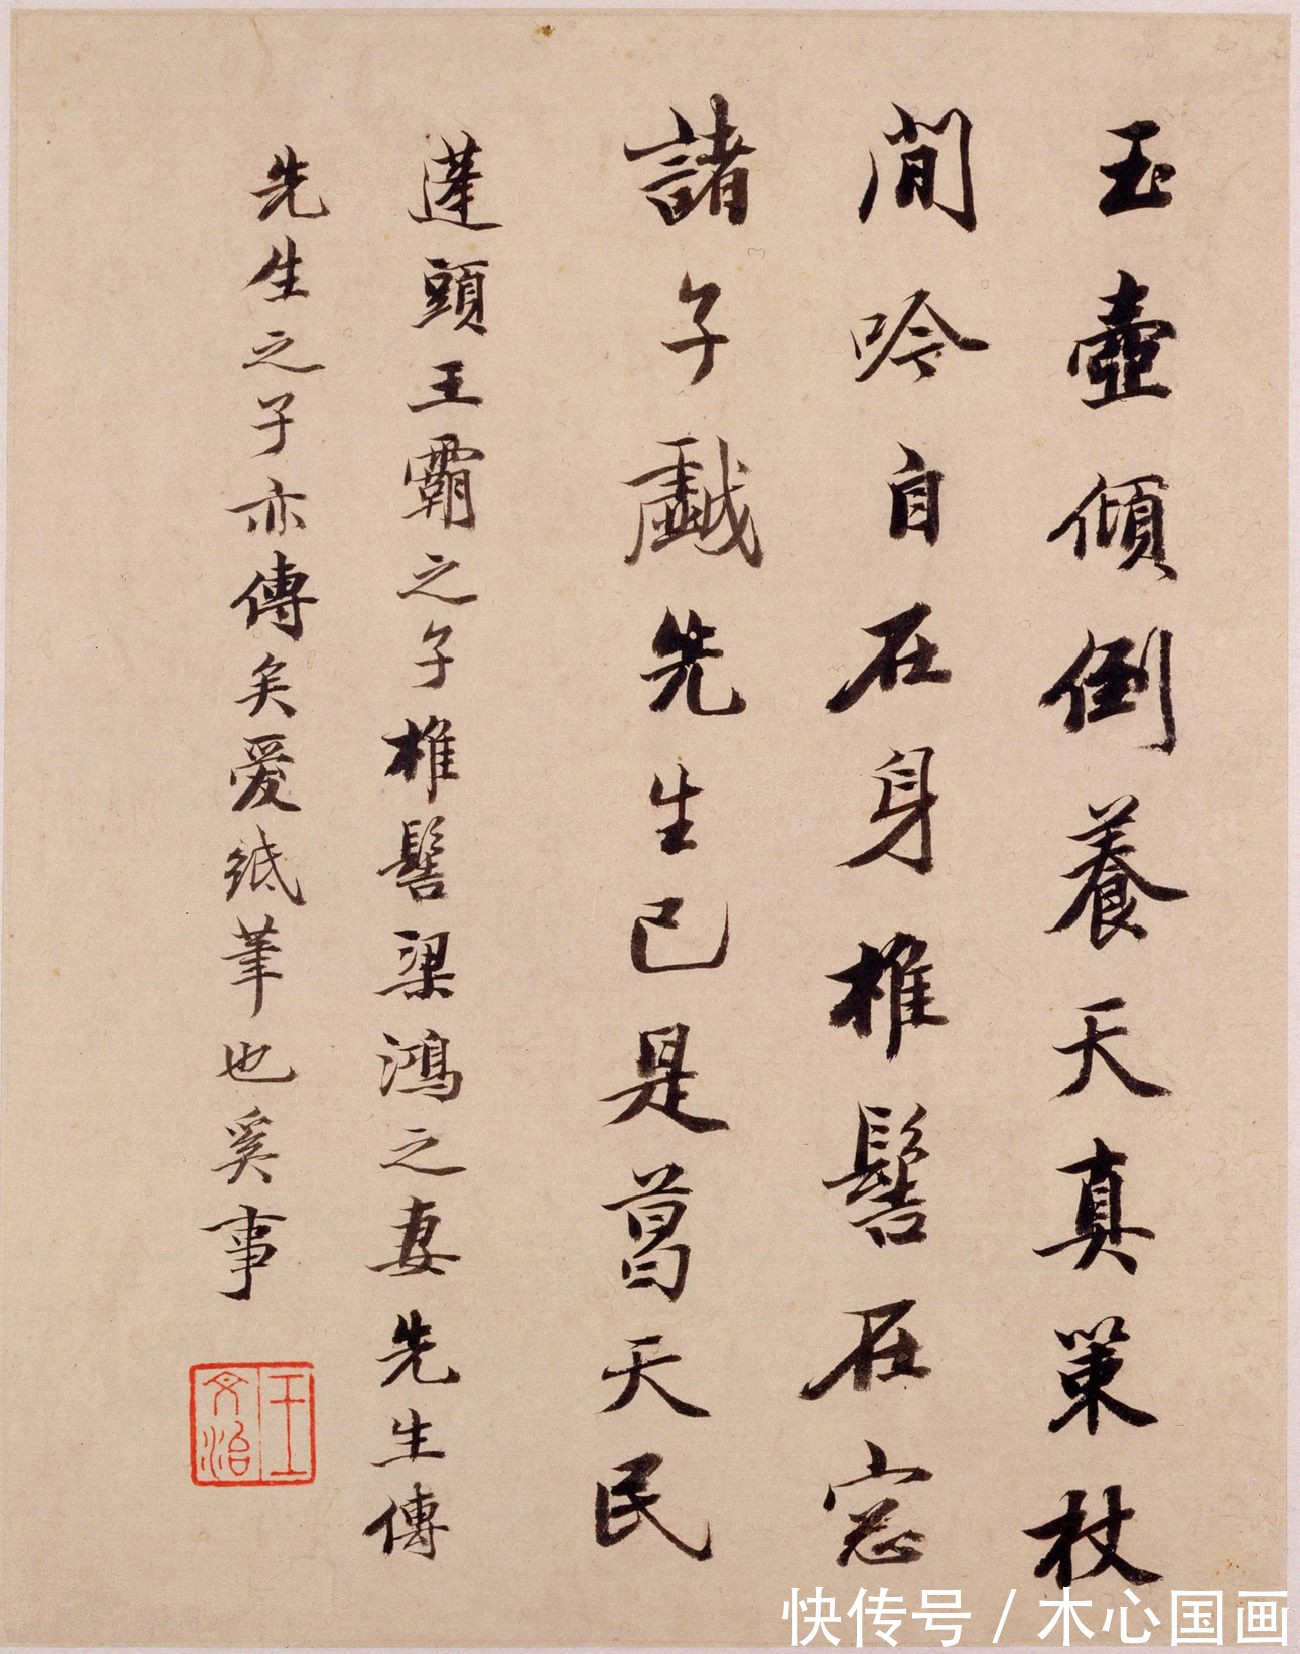 玉壺傾倒養天真策杖
閒吟自在身椎髻在窓
諸子戲先生已是葛天民
蓬頭王霸之子椎髻梁鴻之妻先生傳
先生之子亦傳矣爰紙筆也奚事
王文治
快传号/木心国画